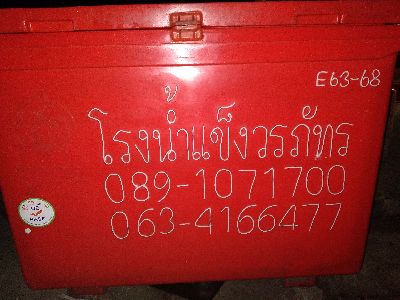 E63-68
โรงน้ำแข็งวรภัทร
089-1071700
063-4166477